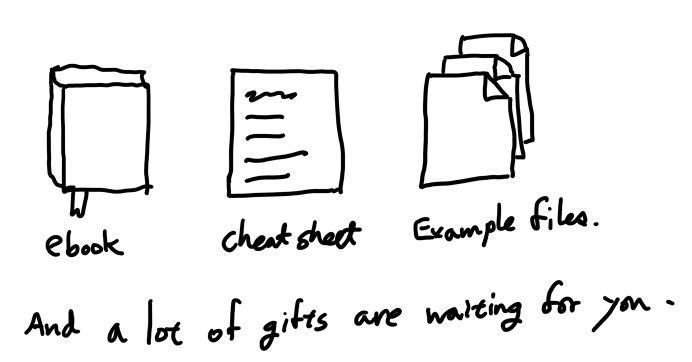 ebook
cheat sheet
Example files.
And a lot of gifts are waiting for you.